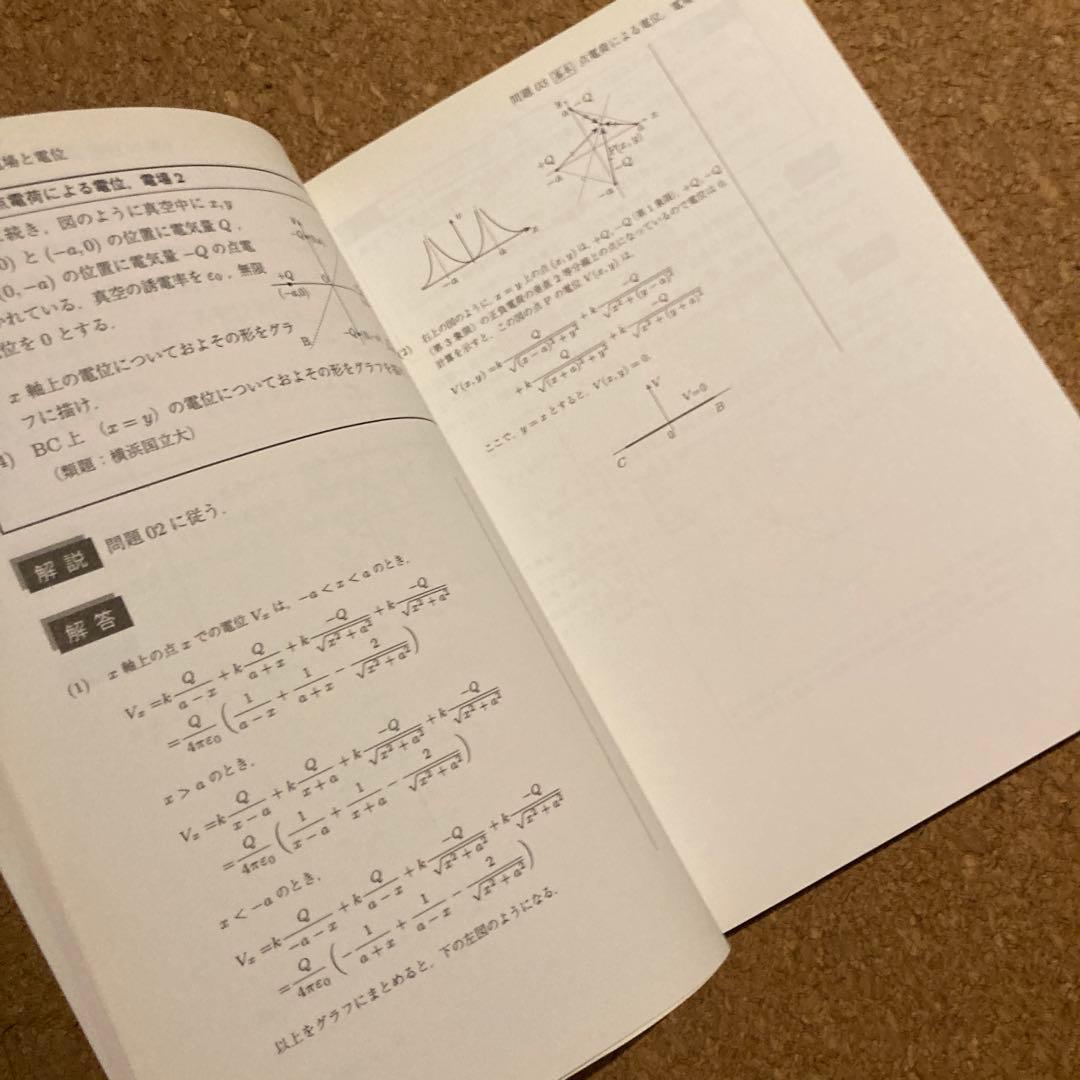 場と電位
点電荷による電位，電場2
続き，図のように真空中に x, y
0) と (−a, 0) の位置に電気量 Q，
(0, −a) の位置に電気量 −Q の点電
かれている．真空の誘電率を ε₀，無限
位を 0 とする．
x 軸上の電位についておよその形をグラ
フに描け．
4) BC 上 (x = y) の電位についておよその形をグラフを
(類題：横浜国立大)
y
−Q
+Q
(−a,0)
0
B
解説 問題 02 に従う．
解答
(1) x 軸上の点 x での電位 Vₓ は，−a < x < a のとき，
Vₓ = k Q/(a−x) + k Q/(a+x) + k −Q/√(x²+a²) + k −Q/√(x²+a²)
= Q/(4πε₀) (1/(a−x) + 1/(a+x) − 2/√(x²+a²))
x > a のとき，
Vₓ = k Q/(x−a) + k Q/(x+a) + k −Q/√(x²+a²) + k −Q/√(x²+a²)
= Q/(4πε₀) (1/(x−a) + 1/(x+a) − 2/√(x²+a²))
x < −a のとき，
Vₓ = k Q/(−a−x) + k Q/(a−x) + k −Q/√(x²+a²) + k −Q/√(x²+a²)
= Q/(4πε₀) (−1/(a+x) + 1/(a−x) − 2/√(x²+a²))
以上をグラフにまとめると，下の左図のようになる．
問題 03 基本 点電荷による電位，電場
y
a −Q
+Q
−a
a x
P(x, y)
−Q
−a
−a
a
x
(2) 右上の図のように，x = y 上の点 (x, y) は，+Q, −Q (第 1 象限)，+Q, −Q
(第 3 象限) の正負電荷の垂直 2 等分線上の点になっているので電位は 0．
計算を示すと，この図の点 P の電位 V(x, y) は，
V(x, y) = k Q/√((x−a)²+y²) + k −Q/√(x²+(y−a)²)
+ k Q/√((x+a)²+y²) + k −Q/√(x²+(y+a)²)
ここで，y = x とすると，V(x, y) = 0．
V
V=0
B
0
C